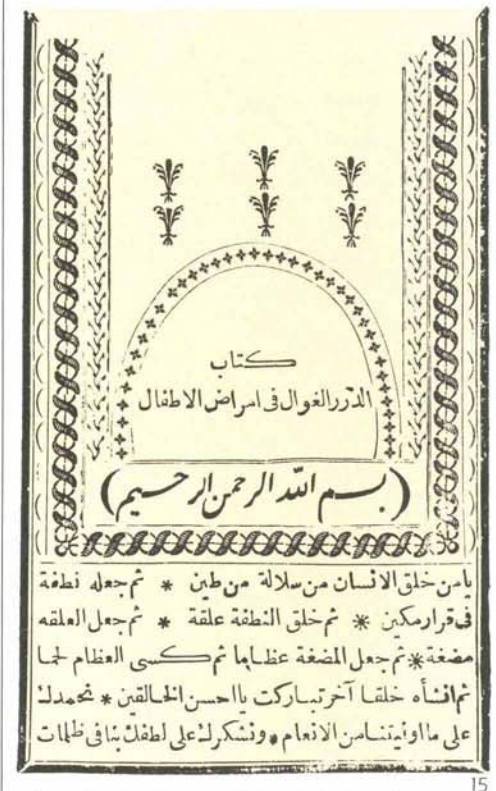 كتاب
الدرر الغوال فى امراض الاطفال
(بسم الله الرحمن الرحيم)
يا من خلق الانسان من سلالة من طين * ثم جعله نطفة
فى قرار مكين * ثم خلق النطفة علقة * ثم جعل العلقه
مضغة * ثم جعل المضغة عظاما ثم كسى العظام لحما
ثم انشأه خلقا آخر تباركت يا احسن الخالقين * نحمدك
على ما اوليتنا من الانعام * ونشكرك على لطفك بنا فى ظلمات
15